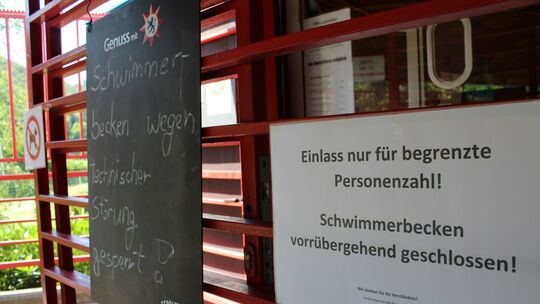 Genuss mit
Schwimmer-
becken wegen
technischer
Störung
gesperrt
Einlass nur für begrenzte
Personenzahl!
Schwimmerbecken
vorrübergehend geschlossen!
Wir danken für Ihr Verständnis!